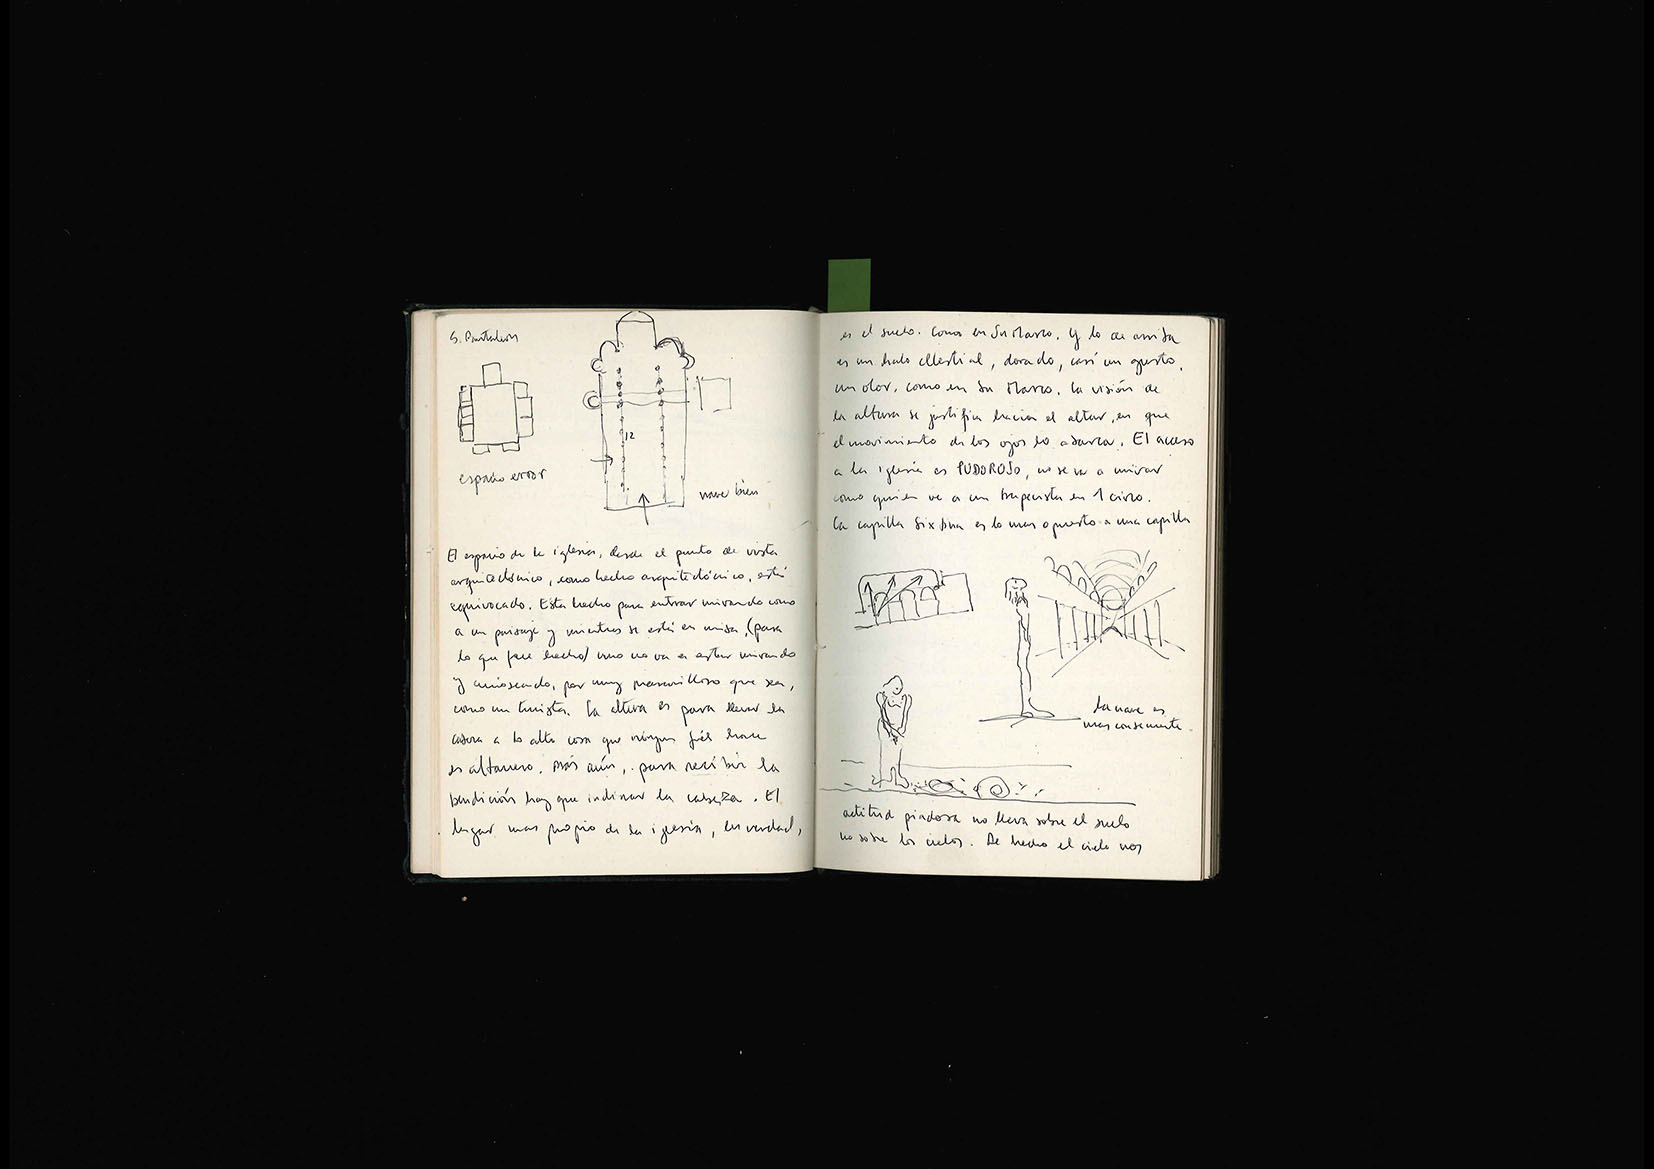 S. Pantaleon
espacio error
12
nave bien
El espacio de la iglesia, desde el punto de vista
arquitectónico, como hecho arquitectónico, está
equivocado. Esta hecho para entrar mirando como
a un paisaje y mientras se está en misa, (para
lo que fue hecho) uno no va a estar mirando
y curioseando, por muy maravilloso que sea,
como un turista. La altura es para llevar la
cabeza a lo alto cosa que ningun fiel hace
es altanero. Más aún, para recibir la
bendición hay que inclinar la cabeza. El
lugar mas propio de la iglesia, en verdad,
es el suelo. Como en Sn Marco. Y lo de arriba
es un halo celestial, dorado, casi un
un olor, como en Sn Marco. La visión de
la altura se justifica hacia el altar, en que
el movimiento de los ojos lo abarca. El acceso
a la iglesia es PUDOROSO, no se va a mirar
como quien ve a un trapecista en 1 circo.
La capilla Sixtina es lo mas opuesto a una capilla
La nave es
mas consecuente
actitud piadosa no lleva sobre el suelo
no sobre los cielos. De hecho el cielo nos